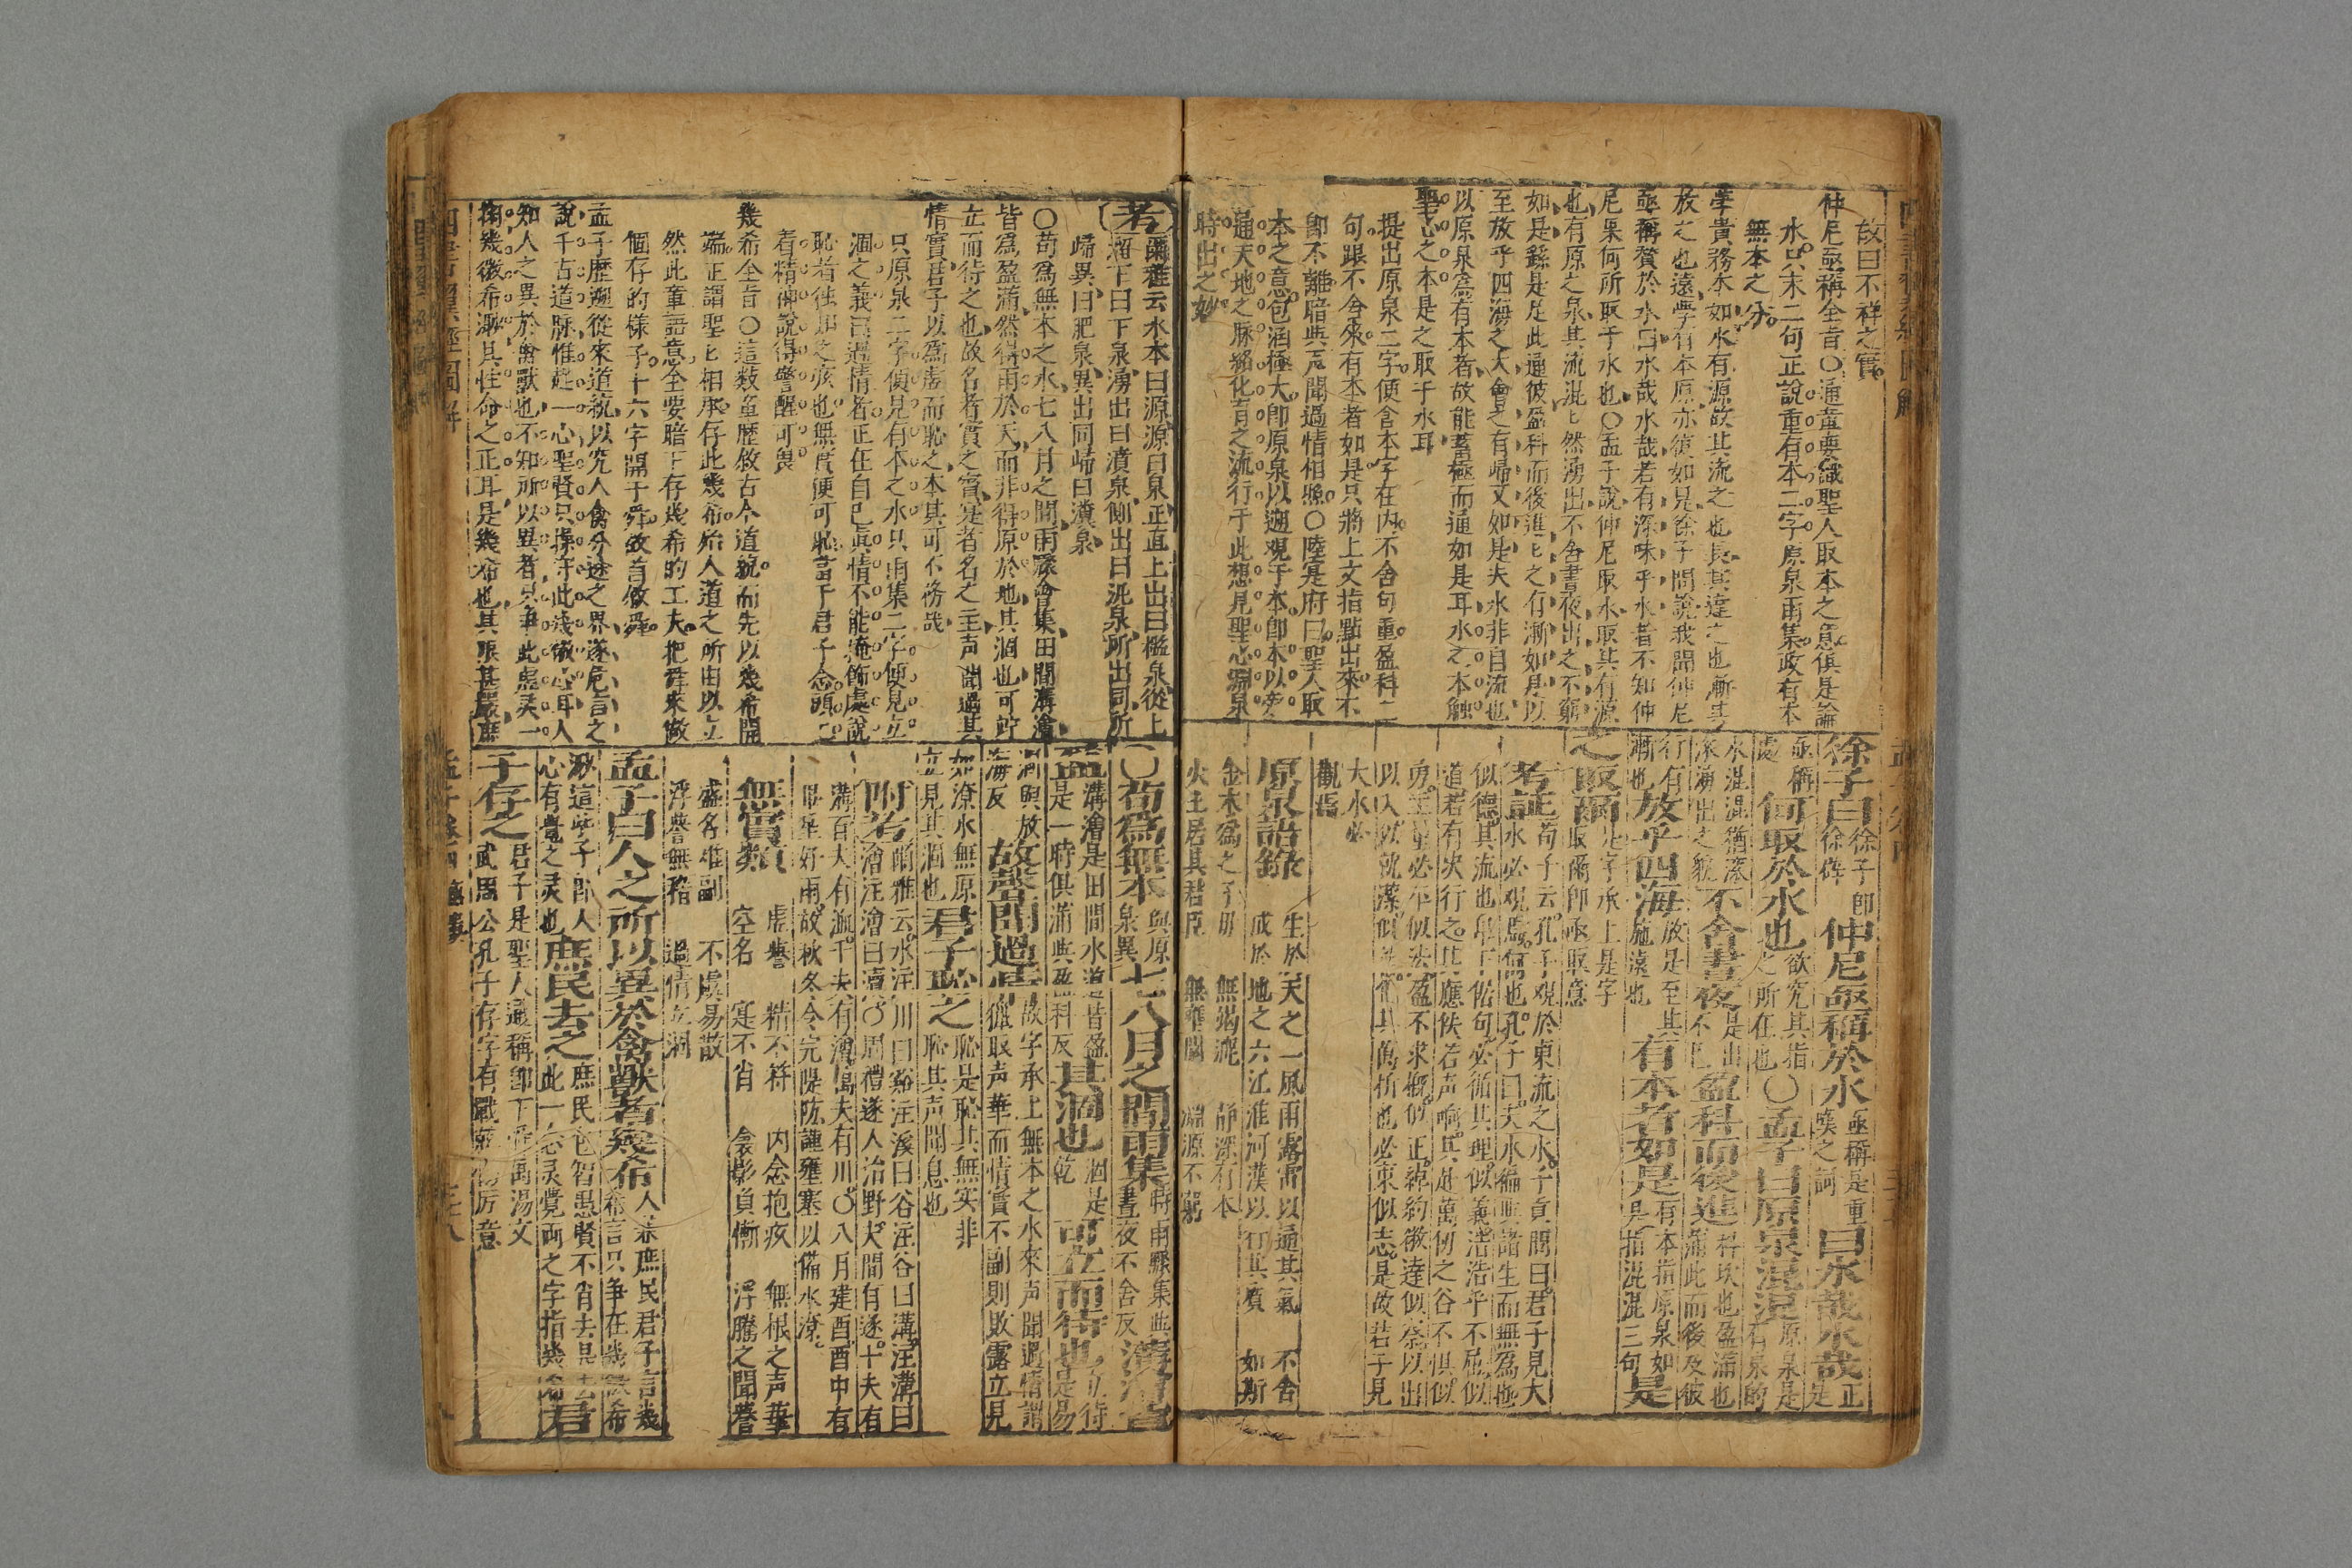 故曰不祥之實
仲尼亟稱全旨○通章要識聖人取本之意俱是論
水只末二句正說重有本二字原泉雨集政有本
無本之分
學貴務本如水有源故其流之也長其達之也漸
放之也遠學有本原亦復如是徐子問說我聞仲尼
亟稱贊於水曰水哉水哉若有深味乎水者不知仲
尼果何所取于水也○孟子說仲尼取水取其有源
也有原之泉其流混匕然湧出不舍晝夜出之不窮
如是繇是足此通彼盈科而後進匕之有漸如是以
至放乎四海之大會之有歸又如是夫水非自流也
以原泉為有本者故能蓄極而通如是耳水之本觸
聖心之本是之取于水耳
提出原泉二字便含本字在內不舍句重盈科二
句跟不舍來有本者如是只將上文指點出來不
即不離暗與声聞過情相照○陸寔府曰聖人取
本之意包涵極大即原泉以遡观于本即本以旁
通天地之脉絡化育之流行于此想見聖心淵泉
時出之妙
徐子曰徐子即徐辟仲尼亟稱於水亟稱是重嘆之詞曰水哉水哉正是
亟稱處何取於水也欲究其指之所在也○孟子曰原泉混混原泉是有泉的
水混混猶滾滾湧出之貌不舍晝夜是出不已盈科而後進科坎也盈滿也滿此而後及彼
行有漸也放乎四海放是至其施遠也有本者如是有本指原泉如是是指混混三句是
之取爾是字承上是字取爾即亟取意
考証荀子云孔子观於東流之水子貢問曰君子見大
水必观焉何也孔子曰夫水徧與諸生而無為也
似德其流也卑下倨句必循其理似義浩浩乎不屈似
道若有决行之其應佚若声响其赴萬仞之谷不懼似
勇主量必平似法盈不求概似正綽約微達似察以出
以入以就潔似善化其萬折也必東似志是故君子見
大水必
觀焉
原泉語錄 生於天之一風雨露雷以通其氣 不舍
成於地之六江淮河漢以行其質 如斯
金木爲之子母 無竭淲 靜深有本
火土居其君臣 無壅閼 淵源不窮
考爾雅云水本曰源源曰泉正直上出曰檻泉從上
溜下曰下泉湧出曰濆泉側出曰汍泉所出同所
歸異曰肥泉異出同歸曰瀵泉
○苟爲無本之水七八月之間雨驟會集田間溝澮
皆爲盈滿然得雨於天而非得原於地其涸也可竚
立而待之也故名者實之賓寔者名之主声聞過其
情實君子以爲虛而恥之本其可不務哉
只原泉二字便見有本之水只雨集二字便見立
涸之義言過情者正在自已眞情不能掩飾處說
恥者徃如之疾也無實便可恥言于君子念頭上
看精神說得警醒可畏
幾希全旨○這数章歷敘古今道統而先以幾希開
端正謂聖匕相承存此幾希殆人道之所由以立
然此章語意全要暗下存幾希的工夫把舜來做
個存的樣子十六字開于舜故首敘舜
孟子歷遡從來道統以究人禽分途之界遂危言之
說千古道脉惟起一心聖賢只操存此幾微心耳人
知人之異於禽獸也不知所以異者只争此虛灵一
㸃幾微希渺其性命之正耳是幾希也其限甚嚴庶
○苟爲無本與原泉異七八月之間雨集時雨驟集與晝夜不舍反溝澮皆
盈溝澮是田間水道皆盈是一時俱滿與盈科反其涸也涸是乾可立而待也立待是易
涸與放海反故聲聞過情故字承上無本之水來声聞過情謂儘取声華而情實不副則敗露立見
如潦水無原立見其涸也君子恥之恥是恥其無实非恥其声聞息也
附考爾雅云水注川曰谿注溪曰谷注谷曰溝注溝曰
澮注澮曰瀆○周禮遂人治野夫間有遂十夫有
溝百夫有洫千夫有澮萬夫有川○八月建酉酉中有
畢星好雨故秋冬令完隄防謹壅塞以備水潦
無實類 虛譽空名 精不符寔不肖 内念抱疚衾影負慚 無根之声華浮騰之聞譽
盛名难副 不虞易散
浮譽無稽 過情立涸
孟子曰人之所以異於禽獸者幾希人兼庶民君子言幾希言只争在幾微希
渺這些子即人心有覺之灵也庶民去之庶民包智愚賢不肖去是去此一念灵覺两之字指幾希君
子存之君子是聖人通稱即下舜禹湯文武周公孔子存字有戰兢惕厉意